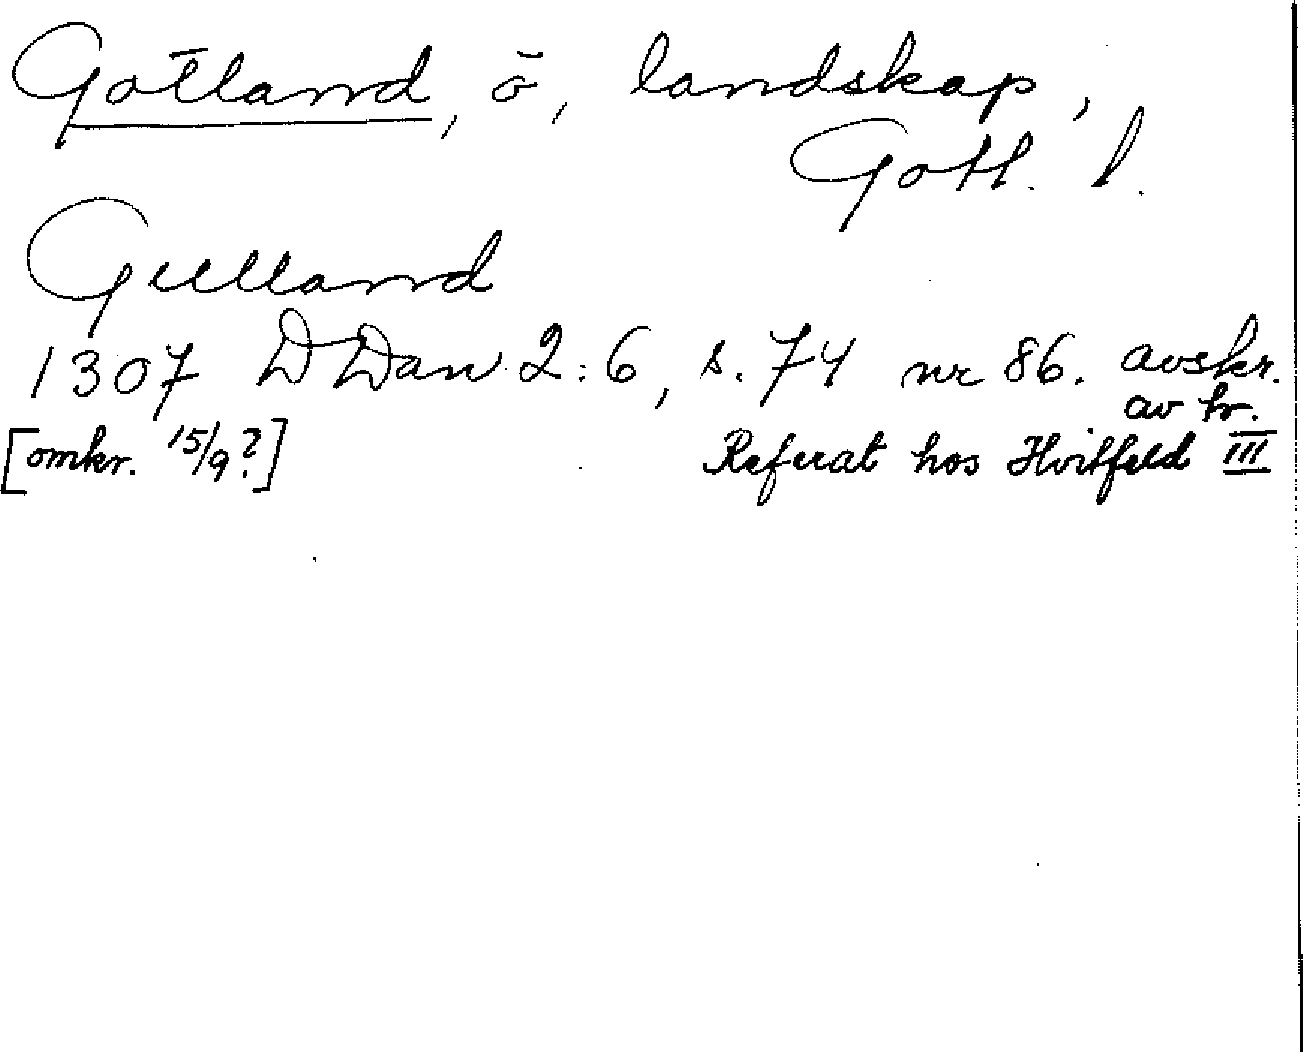 Gotland, ö, landskap,
Gotl. l.
Gulland
1307 DDan 2:6, s. 74 nr 86. avskr.
av tr.
[omkr. 15/9?] Referat hos Hvitfeld III